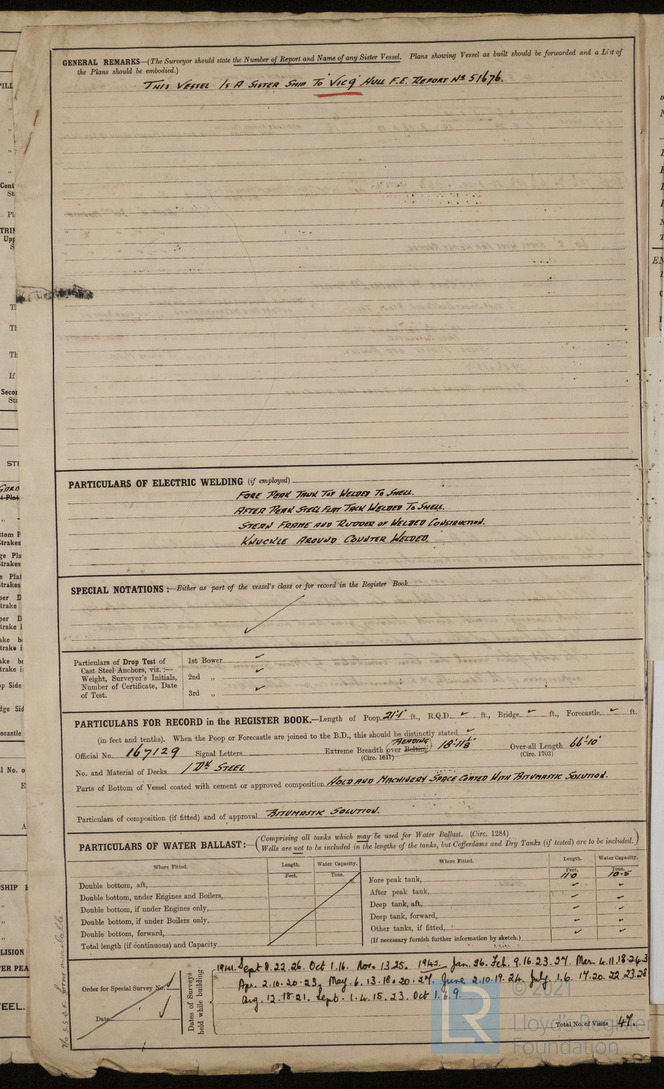 GENERAL REMARKS—(The Surveyor should state the Number of Report and Name of any Sister Vessel. Plans showing Vessel as built should be forwarded and a List of
the Plans should be embodied.)
THIS VESSEL IS A SISTER SHIP TO "VIC 9" HULL F.E. REPORT No 51676.
PARTICULARS OF ELECTRIC WELDING (if employed)
FORE PEAK TANK TOP WELDED TO SHELL.
AFTER PEAK STEEL FLAT TACK WELDED TO SHELL.
STERN FRAME AND RUDDER OF WELDED CONSTRUCTION.
KNUCKLE AROUND COUNTER WELDED.
SPECIAL NOTATIONS:—Either as part of the vessel's class or for record in the Register Book
Particulars of Drop Test of
Cast Steel Anchors, viz.:—
Weight, Surveyor's Initials,
Number of Certificate, Date
of Test.
1st Bower
2nd „
3rd „
PARTICULARS FOR RECORD in the REGISTER BOOK.—Length of Poop 21'-1" ft., R.Q.D. ft., Bridge ft., Forecastle ft.
(in feet and tenths). When the Poop or Forecastle are joined to the B.D., this should be distinctly stated
Official No. 167129 Signal Letters Extreme Breadth over Belting BEADING (Circ. 1617) 18'-11⅝" Over-all Length 66'-10" (Circ. 1703)
No. and Material of Decks 1 DK STEEL
Parts of Bottom of Vessel coated with cement or approved composition HOLD AND MACHINERY SPACE COATED WITH BITUMASTIC SOLUTION.
Particulars of composition (if fitted) and of approval BITUMASTIC SOLUTION.
PARTICULARS OF WATER BALLAST:— (Comprising all tanks which may be used for Water Ballast. (Circ. 1284)
Wells are not to be included in the lengths of the tanks, but Cofferdams and Dry Tanks (if tested) are to be included.)
Where Fitted. Length. Water Capacity. Where Fitted. Length. Water Capacity.
Feet. Tons. Feet. Tons.
Double bottom, aft, Fore peak tank, 11.0 10.5
Double bottom, under Engines and Boilers, After peak tank,
Double bottom, if under Engines only, Deep tank, aft,
Double bottom, if under Boilers only, Deep tank, forward,
Double bottom, forward, Other tanks, if fitted,
Total length (if continuous) and Capacity (If necessary furnish further information by sketch.)
Order for Special Survey No.
Date
Dates of Surveys held while building
1941. Sept 8.22.26. Oct 1.16. Nov. 13.25. 1942. Jan. 26. Feb. 9.16.23.27. Mar. 4.11.18.24.3
Apr. 2.10.20.23. May. 6.13.18.20.27. June 2.10.19.24. July. 1.6.17.20.22.23.28
Aug. 12.18.21. Sept. 1.4.15.23. Oct 1.6.9.
Total No. of Visits 47.
© 2021
Lloyd's Register
Foundation
LR